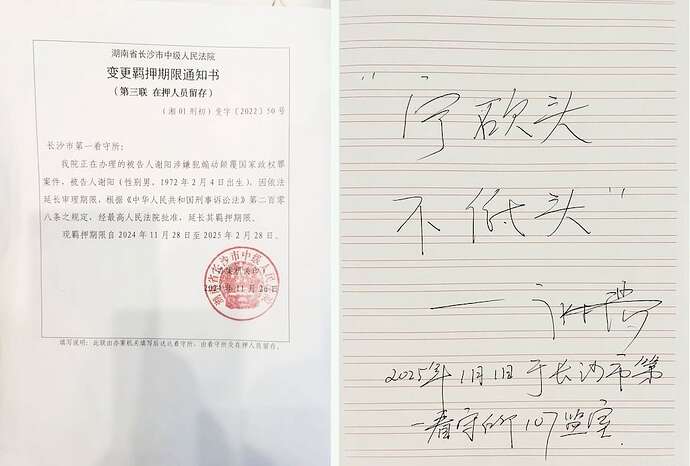 湖南省长沙市中级人民法院
变更羁押期限通知书
（第三联 在押人员留存）
（湘 01 刑初）变字〔2022〕50 号
长沙市第一看守所：
我院正在办理的被告人谢阳涉嫌犯煽动颠覆国家政权罪
案件，被告人谢阳（性别男，1972 年 2 月 4 日出生），因依法
延长审理期限，根据《中华人民共和国刑事诉讼法》第二百零
八条之规定，经最高人民法院批准，延长其羁押期限。
现羁押期限自 2024 年 11 月 28 日至 2025 年 2 月 28 日。
湖南省长沙市中级人民法院
2024 年 11 月 26 日
填写说明：此联由办案机关填写后送达看守所，由看守所交在押人员留存。
“宁砍头
不低头”
— 谢阳
2025年1月1日于长沙市第
一看守所107监室